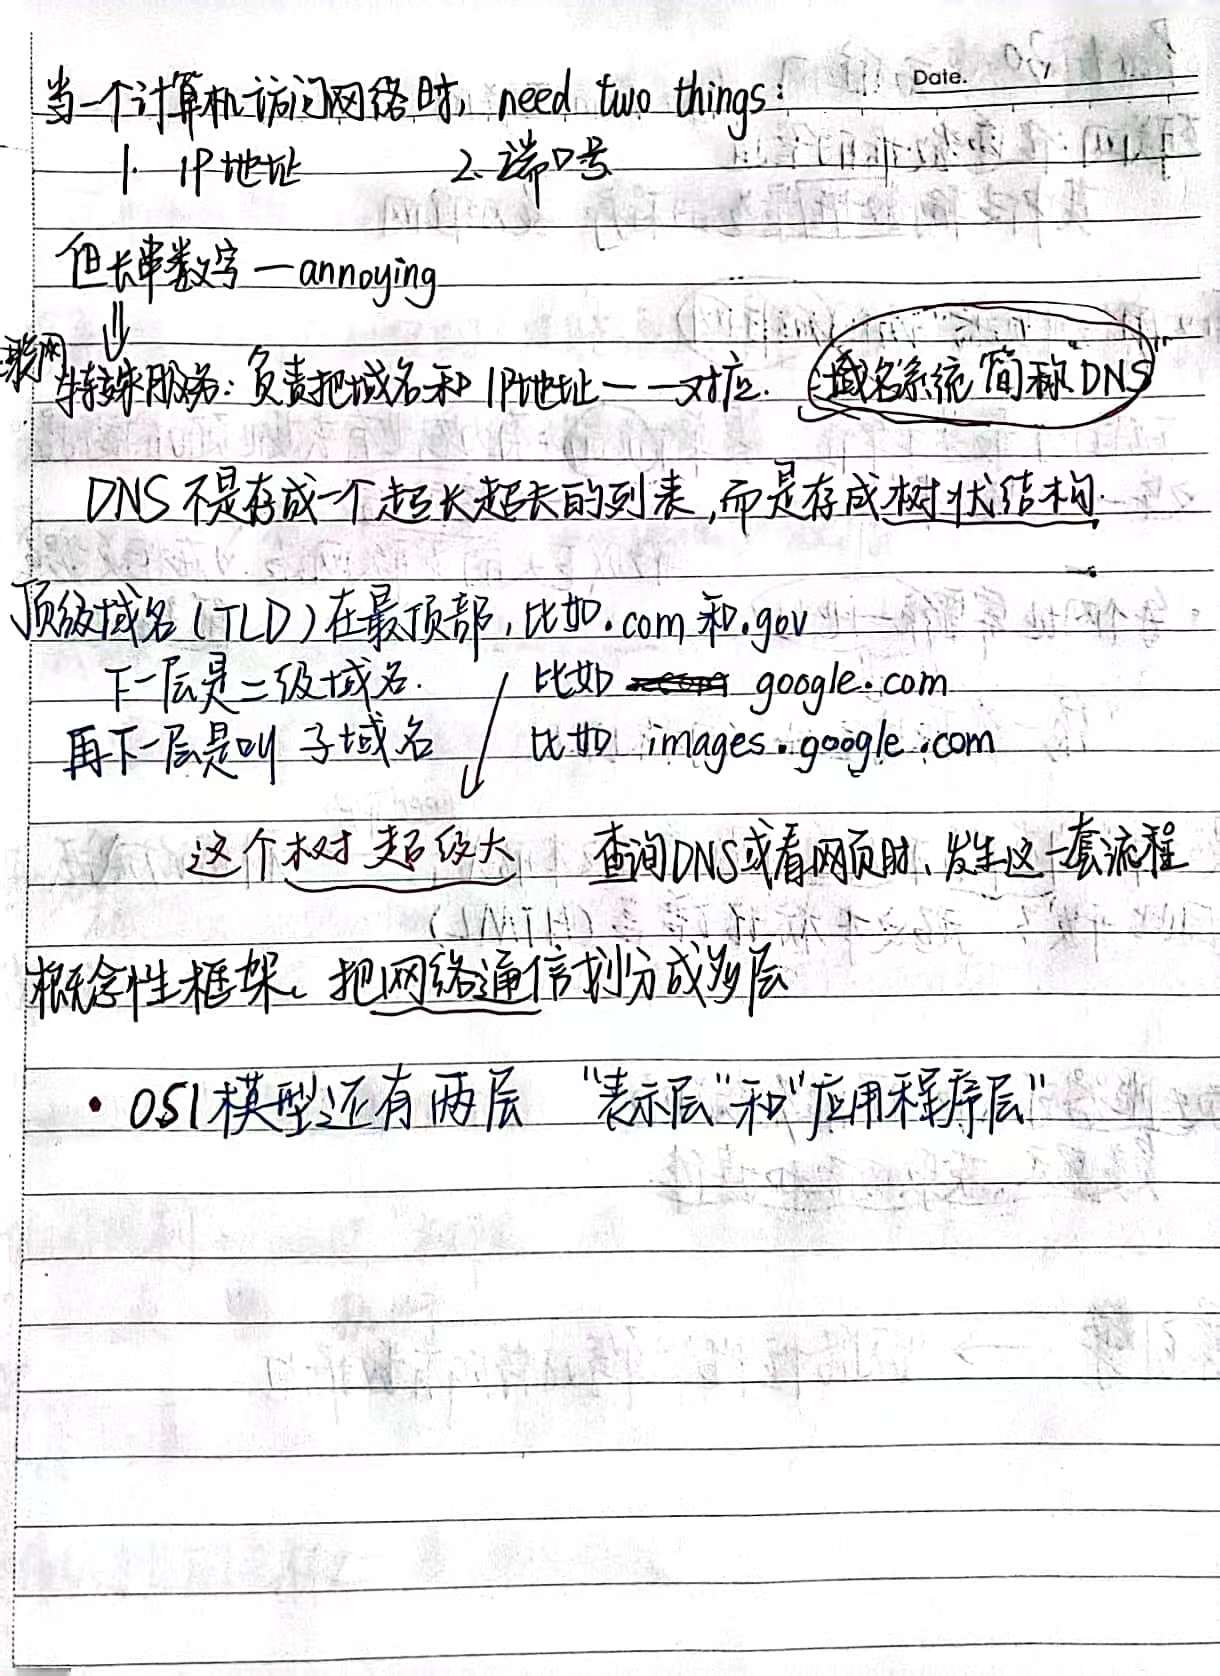 Date.
当一个计算机访问网络时, need two things:
1. IP地址 2. 端口号
但长串数字—annoying
⇓
联网
特殊服务: 负责把域名和IP地址一一对应. 域名系统 简称"DNS"
DNS不是存成一个超长超长的列表,而是存成树状结构.
顶级域名(TLD)在最顶部,比如.com和.gov
下一层是二级域名. 比如 google.com
再下一层是叫 子域名 比如 images.google.com
这个树超级大 查询DNS或看网页时、发生这一套流程
概念性框架。把网络通信划分成多层
• OSI模型还有两层 "表示层"和"应用程序层"